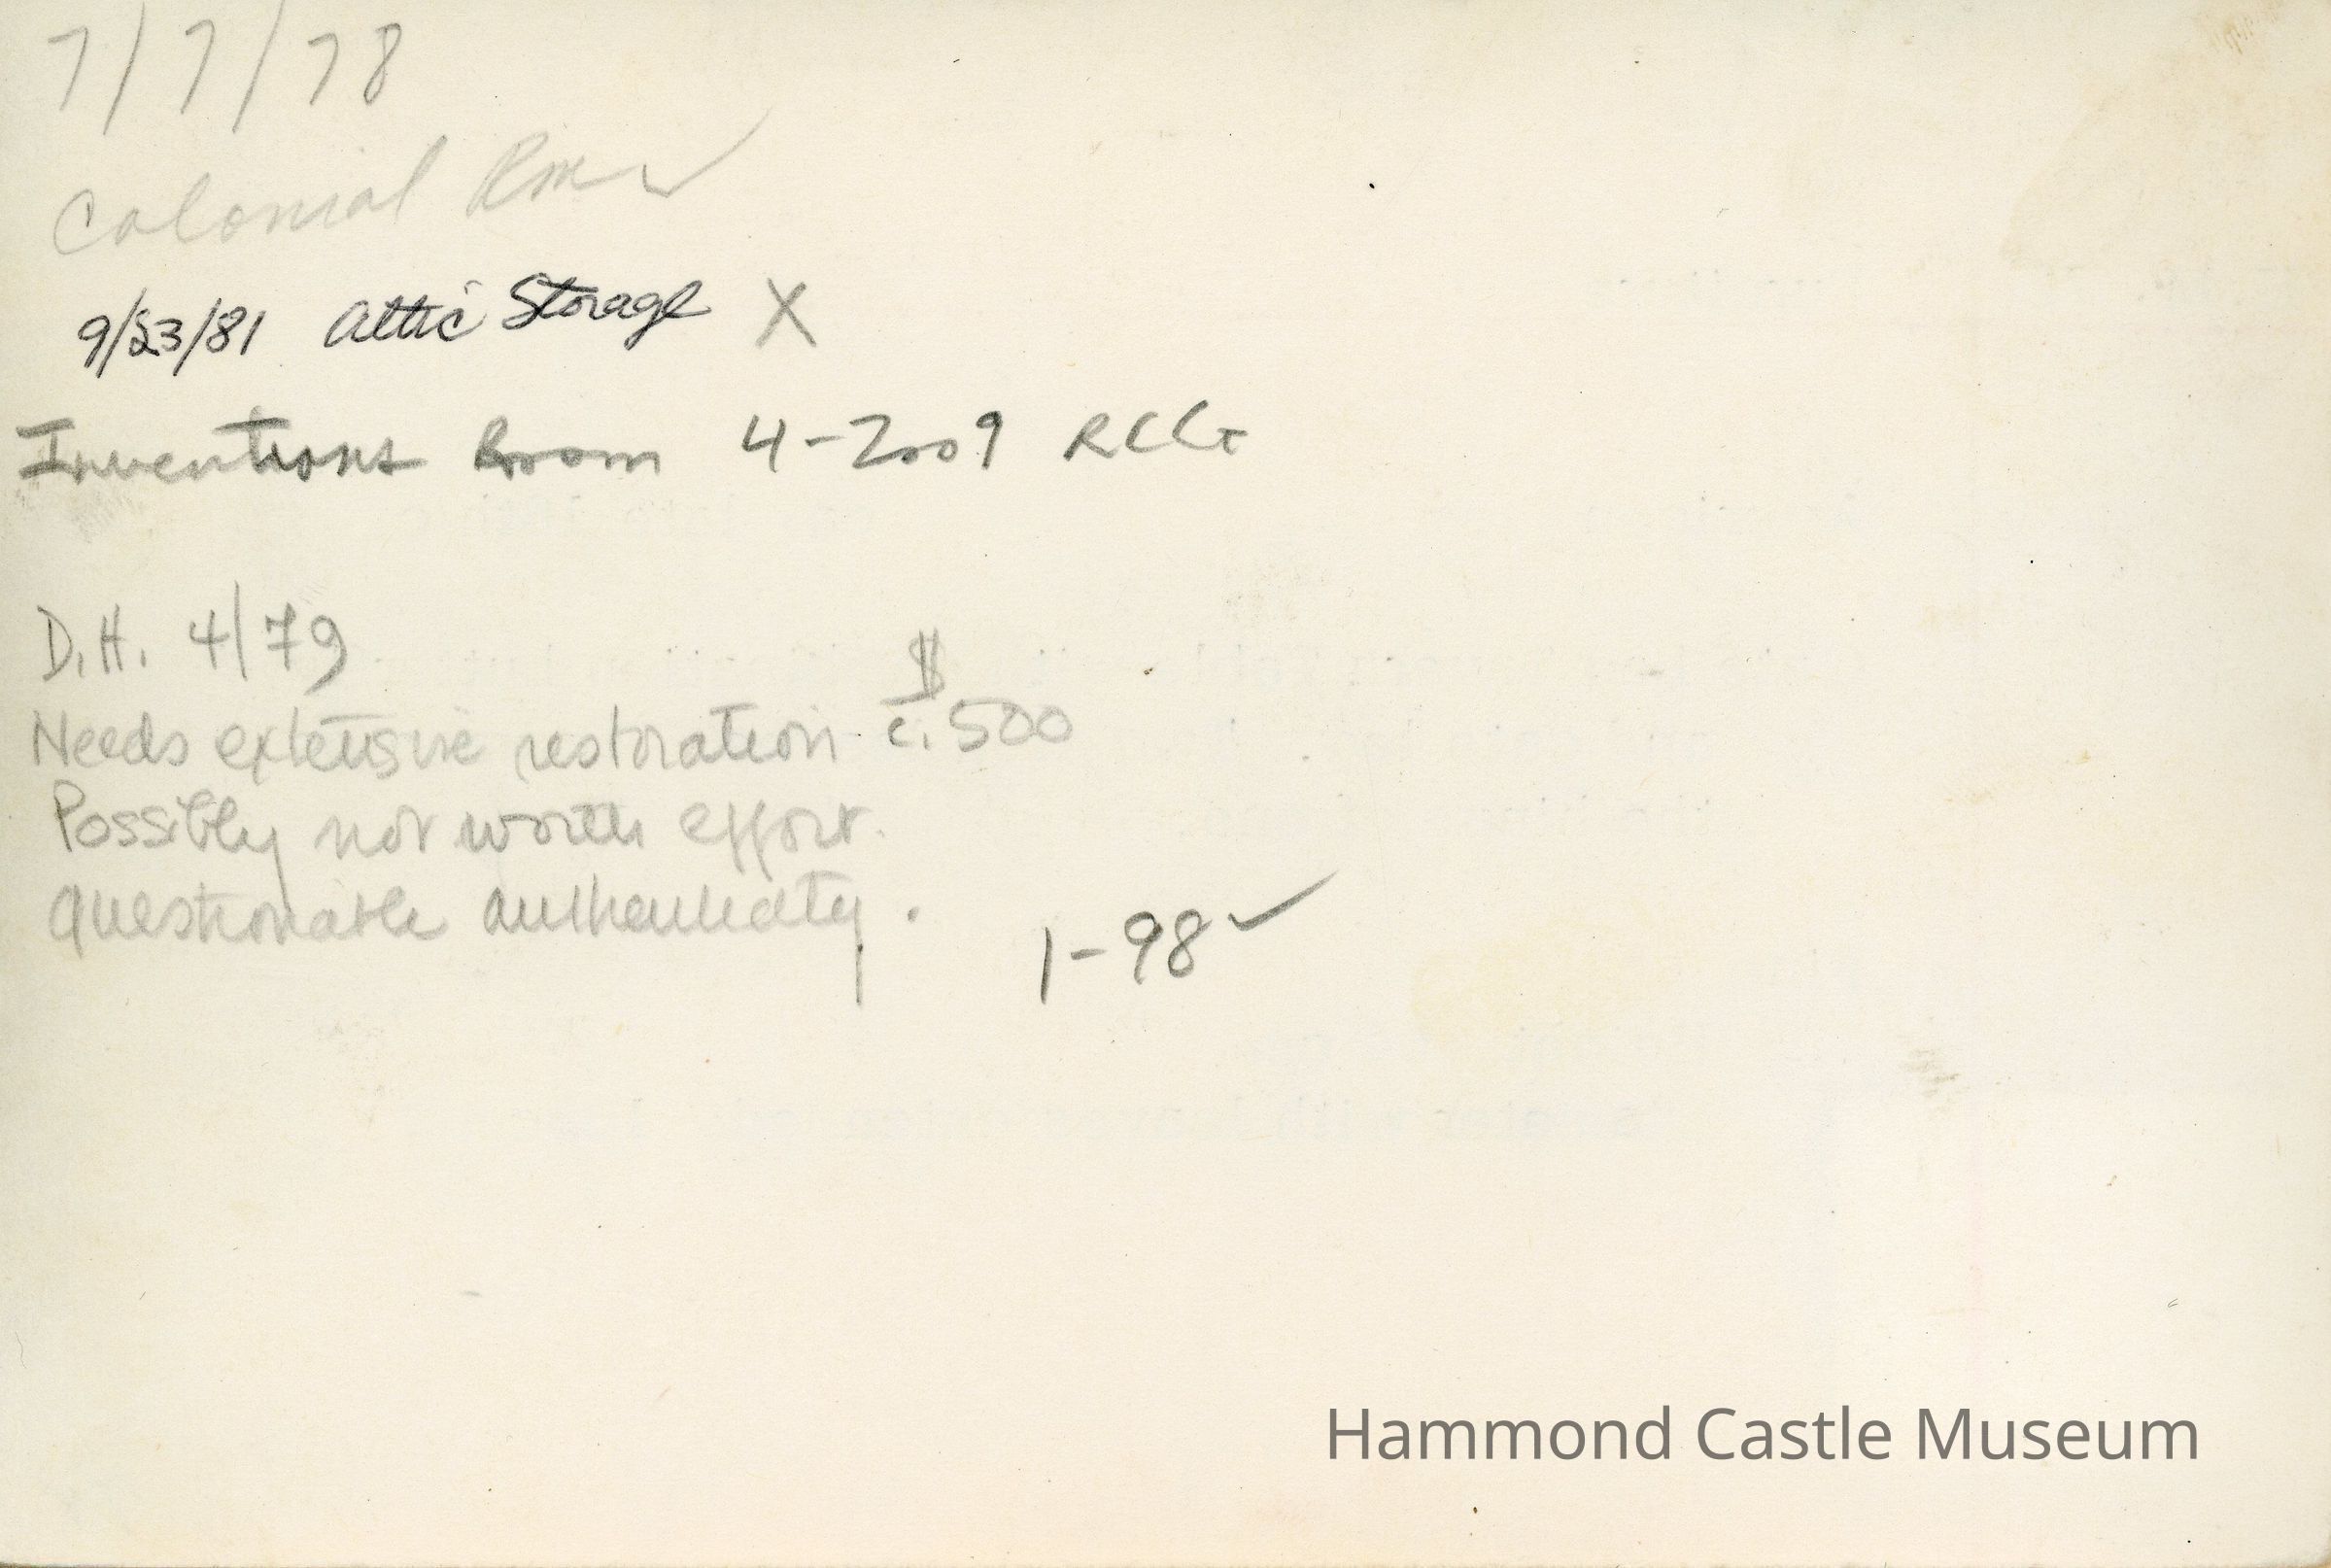 7/7/78
Colonial Rm ✓
9/23/81 Attic Storage X
Inventions Room 4-2009 RCCG
D.H. 4/79
Needs extensive restoration $ c. 500
Possibly not worth effort.
Questionable authenticity.
1-98 ✓
Hammond Castle Museum